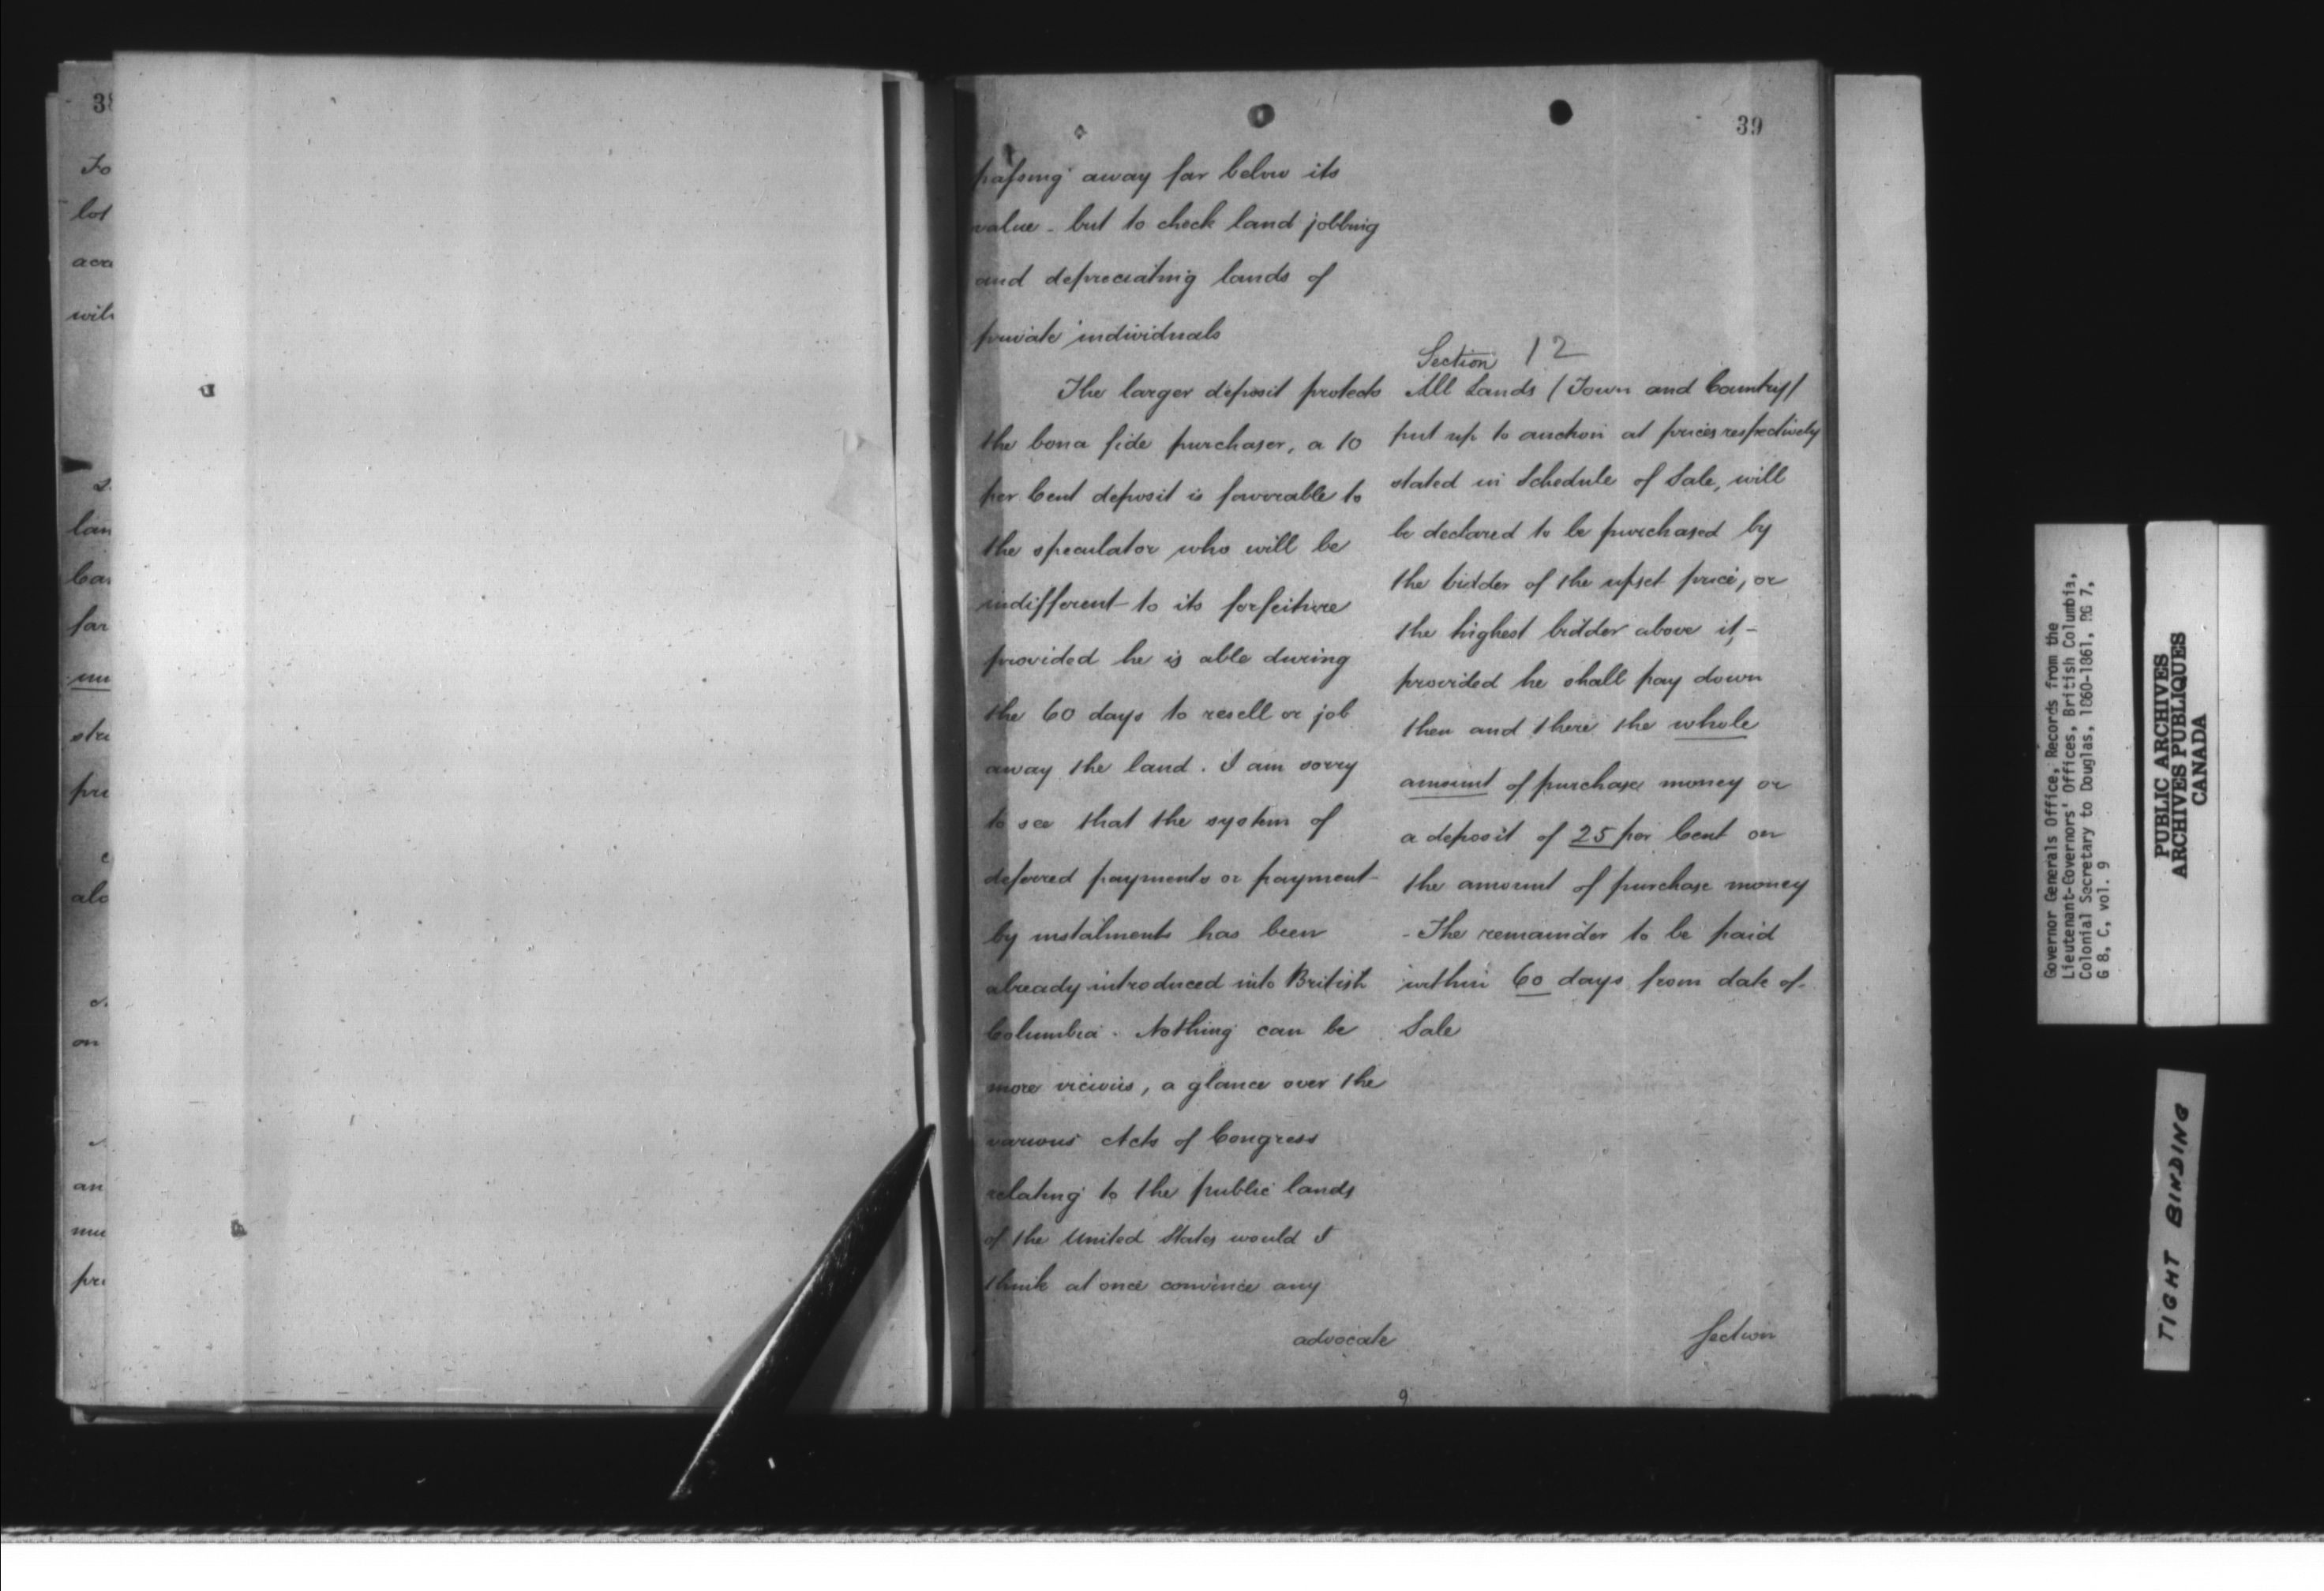 38
Fo
lot
acc
lan
far
pri
alo
on
an
39
passing away far below its
value - but to check land jobbing
and depreciating lands of
private individuals
The larger deposit protects
the bona fide purchaser, a 10
per Cent deposit is favorable to
the speculator who will be
indifferent to its forfeiture
provided he is able during
the 60 days to resell or job
away the land. I am sorry
to see that the system of
deferred payments or payment
by instalments has been
already introduced into British
Columbia. Nothing can be
more vicious, a glance over the
various Acts of Congress
relating to the public lands
of the United States would I
think at once convince any
advocate
Section 12
All Lands (Town and Country)
put up to auction at prices respectively
stated in Schedule of Sale, will
be declared to be purchased by
the bidder of the upset price, or
the highest bidder above it, -
provided he shall pay down
then and there the whole
amount of purchase money or
a deposit of 25 per Cent on
the amount of purchase money
- The remainder to be paid
within 60 days from date of
Sale
Section
9
Governor Generals Office, Records from the
Lieutenant-Governors' Offices, British Columbia,
Colonial Secretary to Douglas, 1860-1861, RG 7,
G 8, C, vol. 9
PUBLIC ARCHIVES
ARCHIVES PUBLIQUES
CANADA
TIGHT BINDING